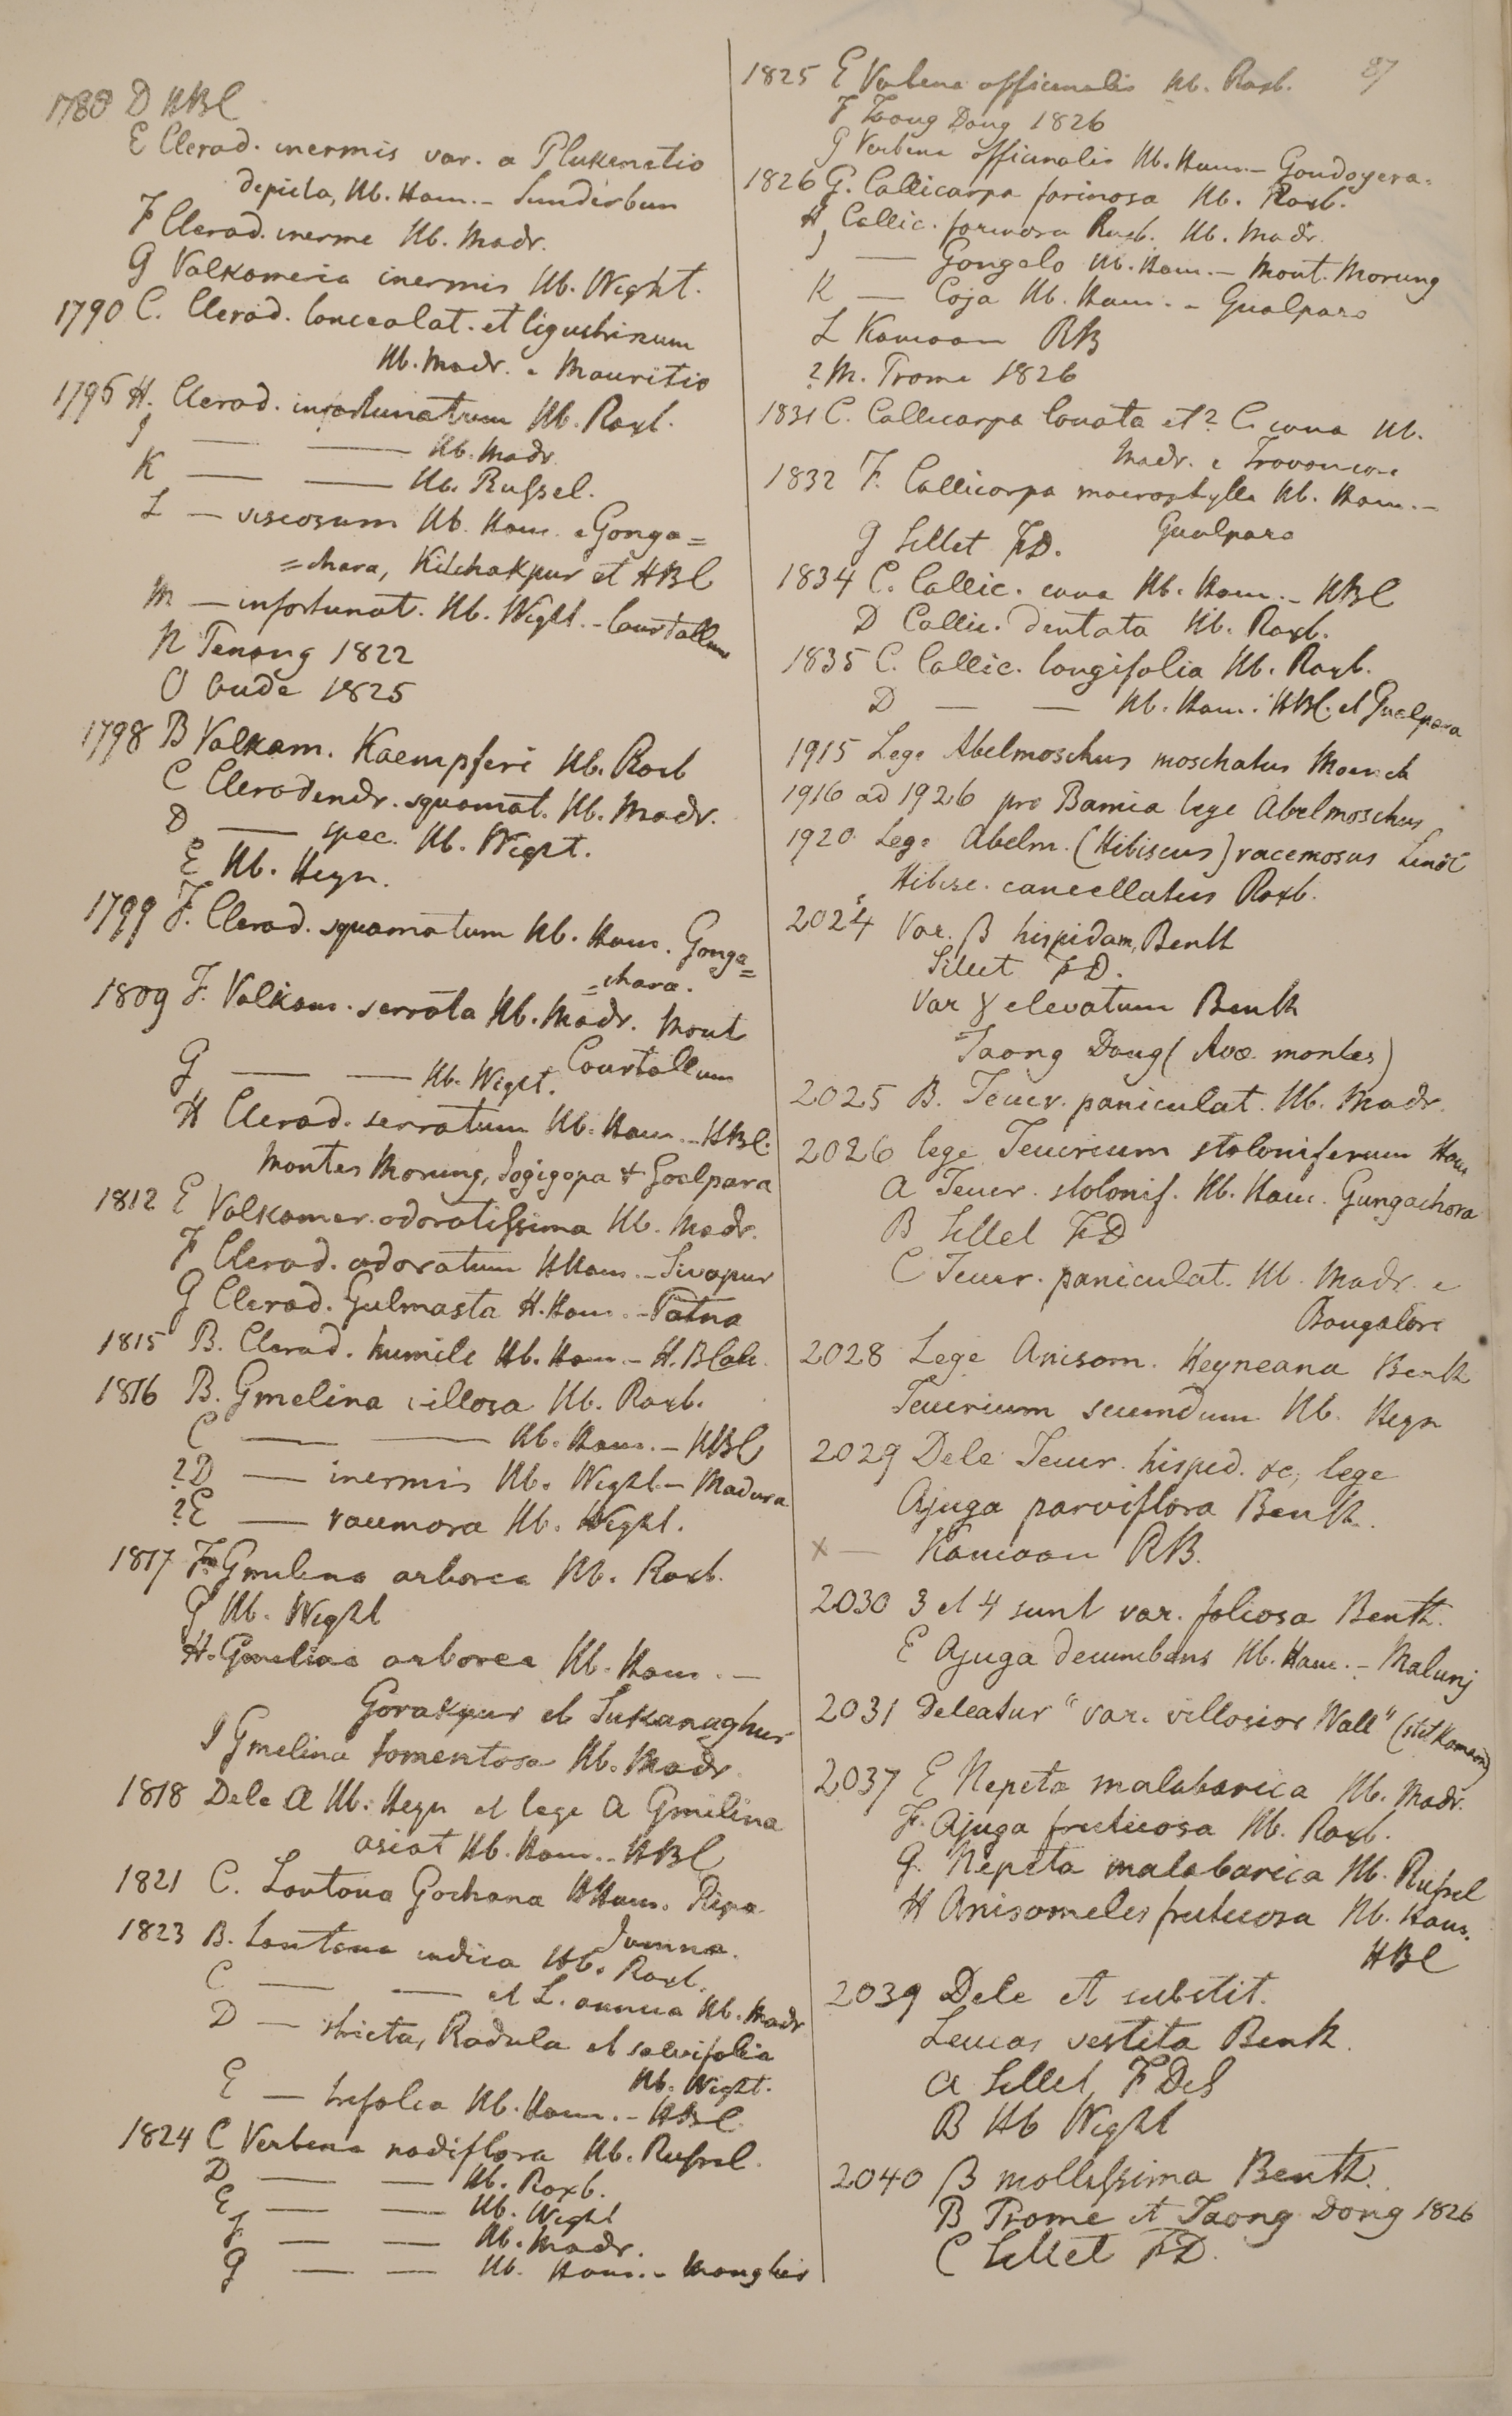 1788 D HBC
E Clerod. inermis var. a Plukenetio
depicta, Hb. Ham. – Sunderbun
F Clerod. inerme Hb. Madr.
G Volkameria inermis Hb. Wight.
1790 C. Clerod. lanceolat. et ligustrinum
Hb. Madr. e Mauritio
1795 H. Clerod. infortunatum Hb. Roxb.
J — — Hb. Madr.
K — — Hb. Russel.
L — viscosum Hb. Ham. e Gonga=
=chara, Kitchakpur et HBC
M — infortunat. Hb. Wight. – Courtallum
N Tenong 1822
O Oude 1825
1798 B Volkam. Kaempferi Hb. Roxb
C Clerodendr. squamat. Hb. Madr.
D — spec. Hb. Wight.
E Hb. Heyn.
1799 F. Clerod. squamatum Hb. Ham. Gonga=
=chara.
1809 F. Volkam. serrata Hb. Madr. Mont
Courtallum
G — — Hb. Wight.
H Clerod. serratum Hb. Ham. – HBC.
Montes Morung, Jogigopa & Goalpara
1812 E Volkamer. odoratissima Hb. Madr.
F Clerod. odoratum HHam. – Sivapur
G Clerod. Gulmasta H. Ham. – Patna
1815 B. Clerod. humile Hb. Ham – H. BCalc.
1816 B. Gmelina villosa Hb. Roxb.
C — — Hb. Ham. – HBC
?D — inermis Hb. Wight. – Madura
?E — racemosa Hb. Wight.
1817 F. Gmelina arborea Hb. Roxb.
G Hb. Wight
H. Gmelina arborea Hb. Ham. –
Gorakpur et Sukanaghur
I Gmelina tomentosa Hb. Madr.
1818 Dele A Hb. Heyn et lege A Gmelina
asiat Hb. Ham. – HBC
1821 C. Lantana Gochana HHam. Ripa
Jumna.
1823 B. Lantana indica Hb. Roxb.
C — — et L. annua Hb. Madr
D — stricta, Radula et salvifolia
Hb. Wight.
E — trifolia Hb. Ham. – HBC
1824 C Verbena nodiflora Hb. Russel.
D — — Hb. Roxb.
E — — Hb. Wight
F — — Hb. Madr.
G — — Hb. Ham. – Monghir
87
1825 E Verbena officinalis Hb. Roxb.
F Taong Dong 1826
G Verbena officinalis Hb. Ham – Gondogera.
1826 G. Callicarpa farinosa Hb. Roxb.
H Callic. farinosa Roxb. Hb. Madr.
J — Gongalo Hb. Ham. – Mont. Morung
K — Coja Hb. Ham. – Gualpara
L Kamaon RB
?M. Prome 1826
1831 C. Callicarpa lanata et? C. cana Hb.
Madr. e Travancore
1832 F. Callicarpa macrophylla Hb. Ham. –
Gualpara
G Sillet FD.
1834 C. Callic. cana Hb. Ham. – HBC
D Callic. dentata Hb. Roxb.
1835 C. Callic. longifolia Hb. Roxb.
D — — Hb. Ham. HBC. et Gualpara
1915 Lege Abelmoschus moschatus Moench
1916 ad 1926 pro Bamia lege Abelmoschus
1920 Lege Abelm. (Hibiscus) racemosus Lindl
Hibisc. cancellatus Roxb.
2024 Var. β hispidam, Benth
Sillet FD.
Var γ elevatum Benth
Taong Dong (Avæ montes)
2025 B. Teucr. paniculat. Hb. Madr.
2026 lege Teucrium stoloniferum Ham
A Teucr. stolonif. Hb. Ham. Gungachora
B Sillet FD
C Teucr. paniculat. Hb. Madr. e
Bangalore
2028 Lege Anisom. Heyneana Benth
Teucrium secundum Hb. Heyn
2029 Dele Teucr. hispid. &c, lege
Ajuga parviflora Benth.
x — Kamaon RB.
2030 3 et 4 sunt var. foliosa Benth.
E Ajuga decumbens Hb. Ham. – Malunj
2031 Deleatur "var. villosior Wall" (stet Kamaon)
2037 E Nepeta malabarica Hb. Madr.
F. Ajuga fruticosa Hb. Roxb.
G. Nepeta malabarica Hb. Russel
H Anisomeles fruticosa Hb. Ham.
HBC
2039 Dele et substit.
Leucas vestita Benth.
A Sillet, FDeS
B Hb Wight
2040 β mollissima Benth.
B Prome et Taong Dong 1826
C Sillet FD.